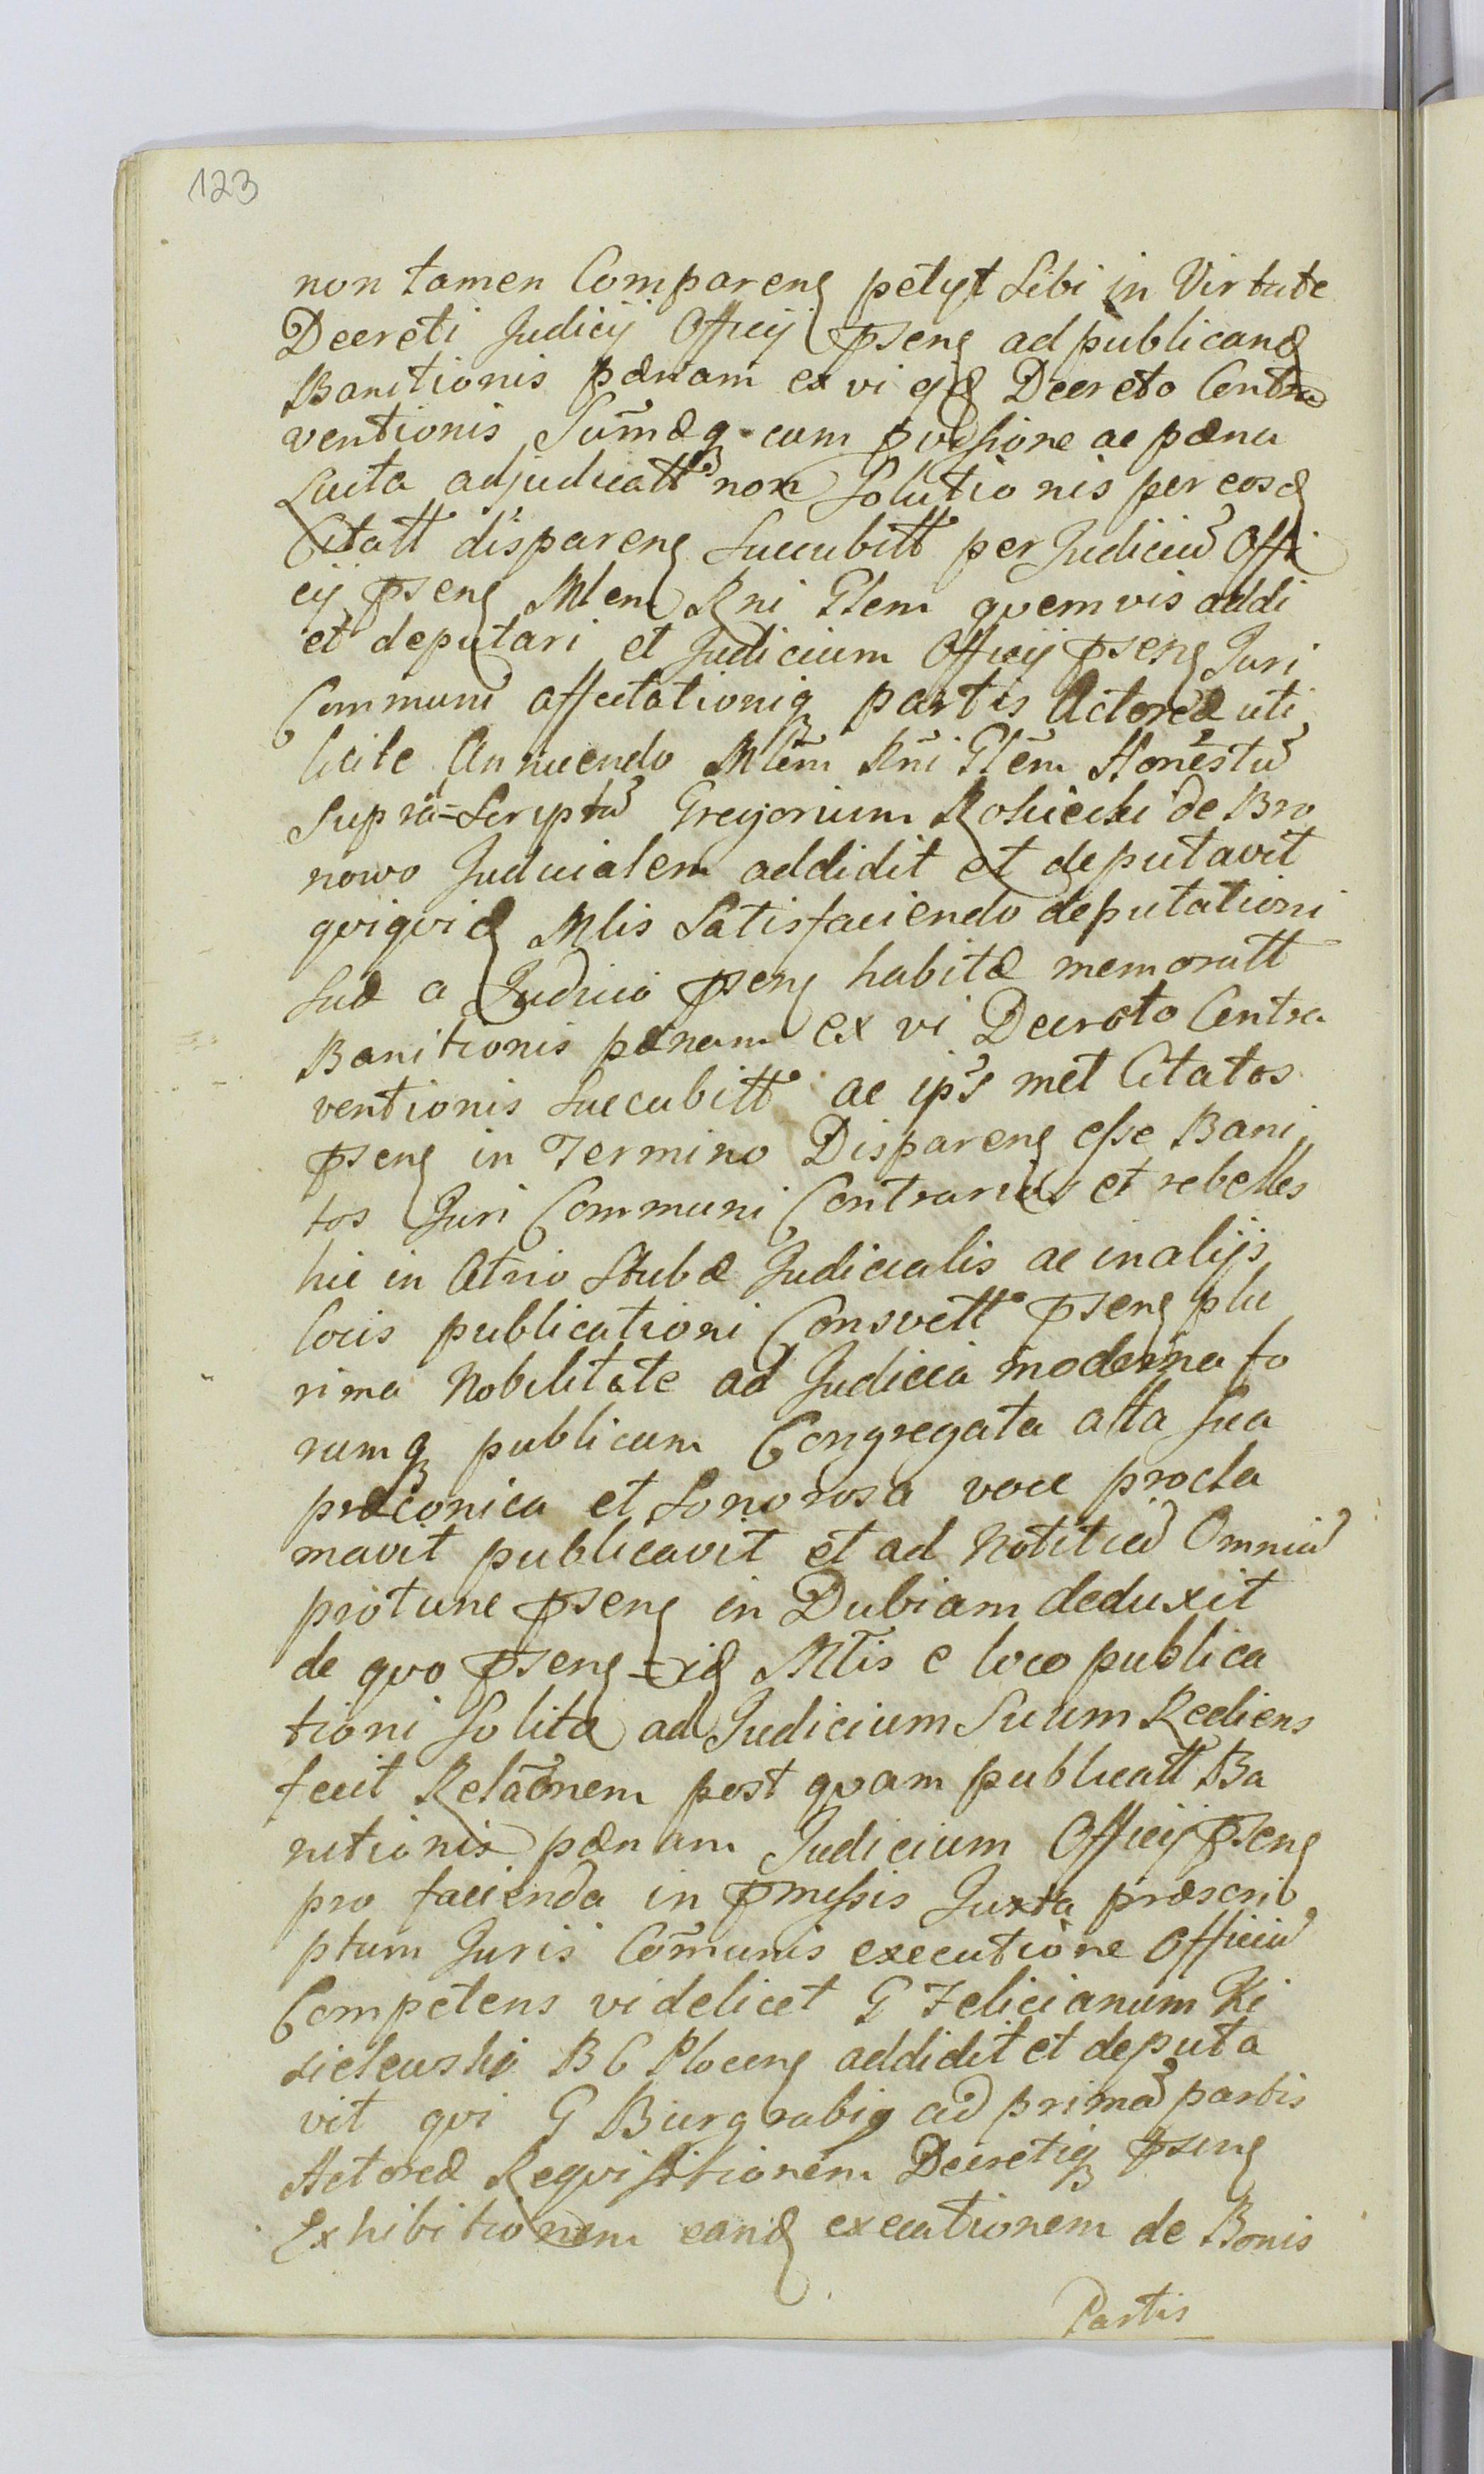 123
non tamen Compareng petyt Sibi in Virtute
Decreti Judicij Officij pseng ad publicand
Banitionis pænam ex vi ejd Decreto Contra
ventionis Sum̃æq cum provisione ac pæna
Lucta adjudicatt non Solutionis per eosd
Citatt dispareng Succubitt per Judiciũ Offi
cij pseng Mlem Rni Glem quemvis addi
et deputari et Judicium Officij pseng Juri
Communi affectationiq partis Actoreæ uti
licite Annuendo Mlẽm Rñi Glẽm Honestũ
Supra=Scriptũ Gregorium Rosiecki de Bro
nowo Judicialem addidit et deputavit
quiquid Mlis Satisfaciendo deputationi
suæ a Judicio pseng habitæ memoratt
Banitionis pænam ex vi Decreto Contra
ventionis Succubitt ac ips met Citatos
pseng in Termino Dispareng esse Bani
tos Juri Communi Contrarios et rebelles
hic in Atrio Stubæ Judicialis ac in alijs
locis publicationi Consvett pseng plu
rima Nobilitate ad Judicia moderna fo
rumq publicum Congregata alta sua
præconica et Sonorosa voce procla
mavit publicavit et ad Notitiã Omniũ
protunc pseng in Dubiam deduxit
de quo pseng id Mlis e loco publica
tioni Solita ad Judicium Suum Rediens
fecit Relãonem post quam publicatt Ba
nitionis pænam Judicium Officij pseng
pro facienda in pmissis Juxta præscri
ptum Juris Com̃unis executione Officiũ
Competens videlicet G Felicianum Ki
sielewski B C Ploceng addidit et deputa
vit qui G Burgrabig ad primã partis
Actoreæ Requisitionem Decretiq pseng
Exhibitionem eand executionem de Bonis
Partis